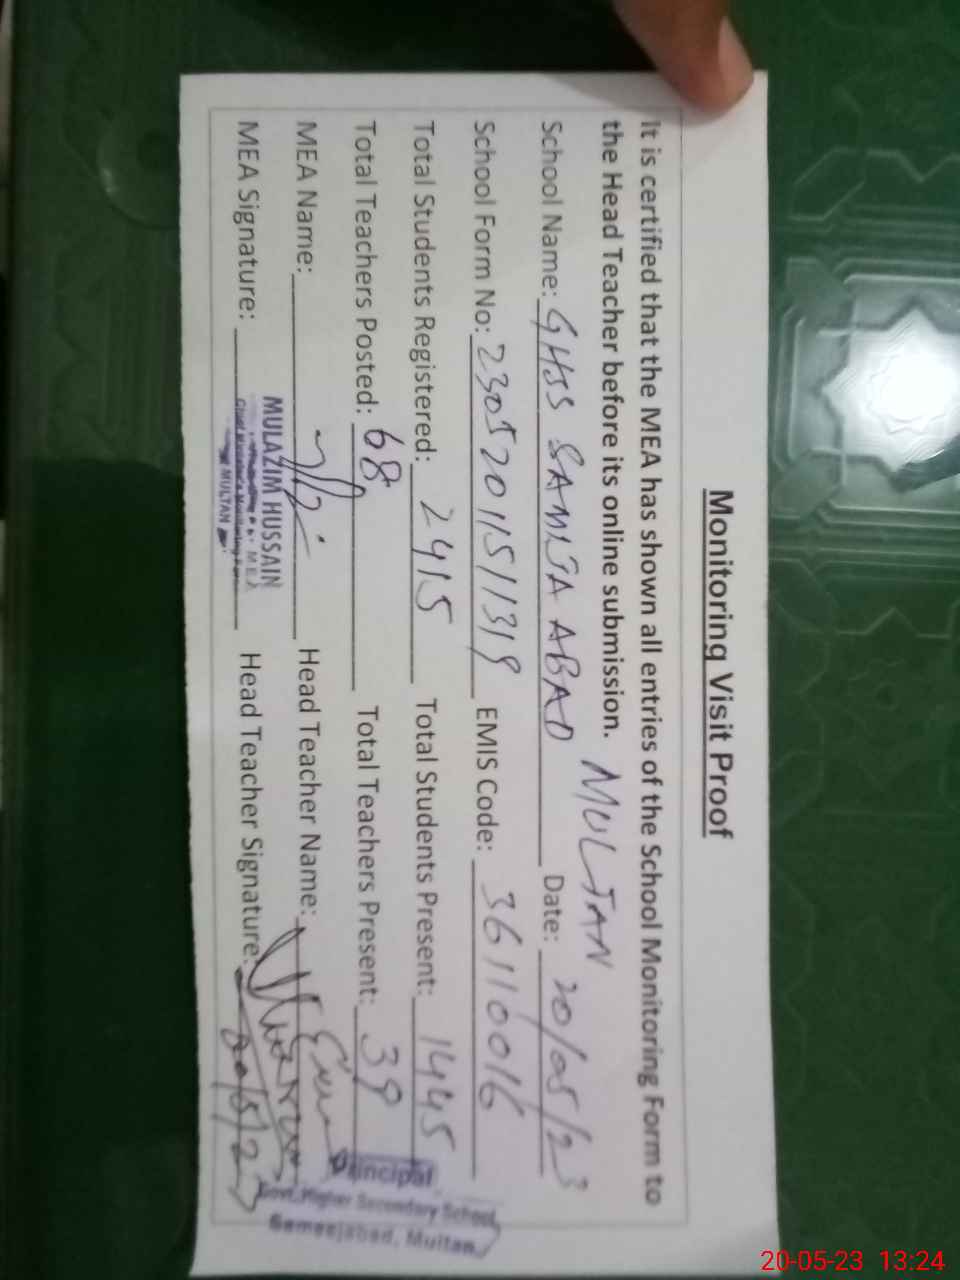 Monitoring Visit Proof
It is certified that the MEA has shown all entries of the School Monitoring Form to
the Head Teacher before its online submission. MULTAN
School Name: GHSS SAMIJA ABAD Date: 20/05/23
School Form No: 23052011511319 EMIS Code: 36110016
Total Students Registered: 2415 Total Students Present: 1445
Total Teachers Posted: 68 Total Teachers Present: 39
MEA Name: Head Teacher Name:
MEA Signature: Head Teacher Signature: 20/5/23
MULAZIM HUSSAIN
M.E.A
MULTAN
Principal
Govt. Higher Secondary School
Sameejabad, Multan
20-05-23 13:24